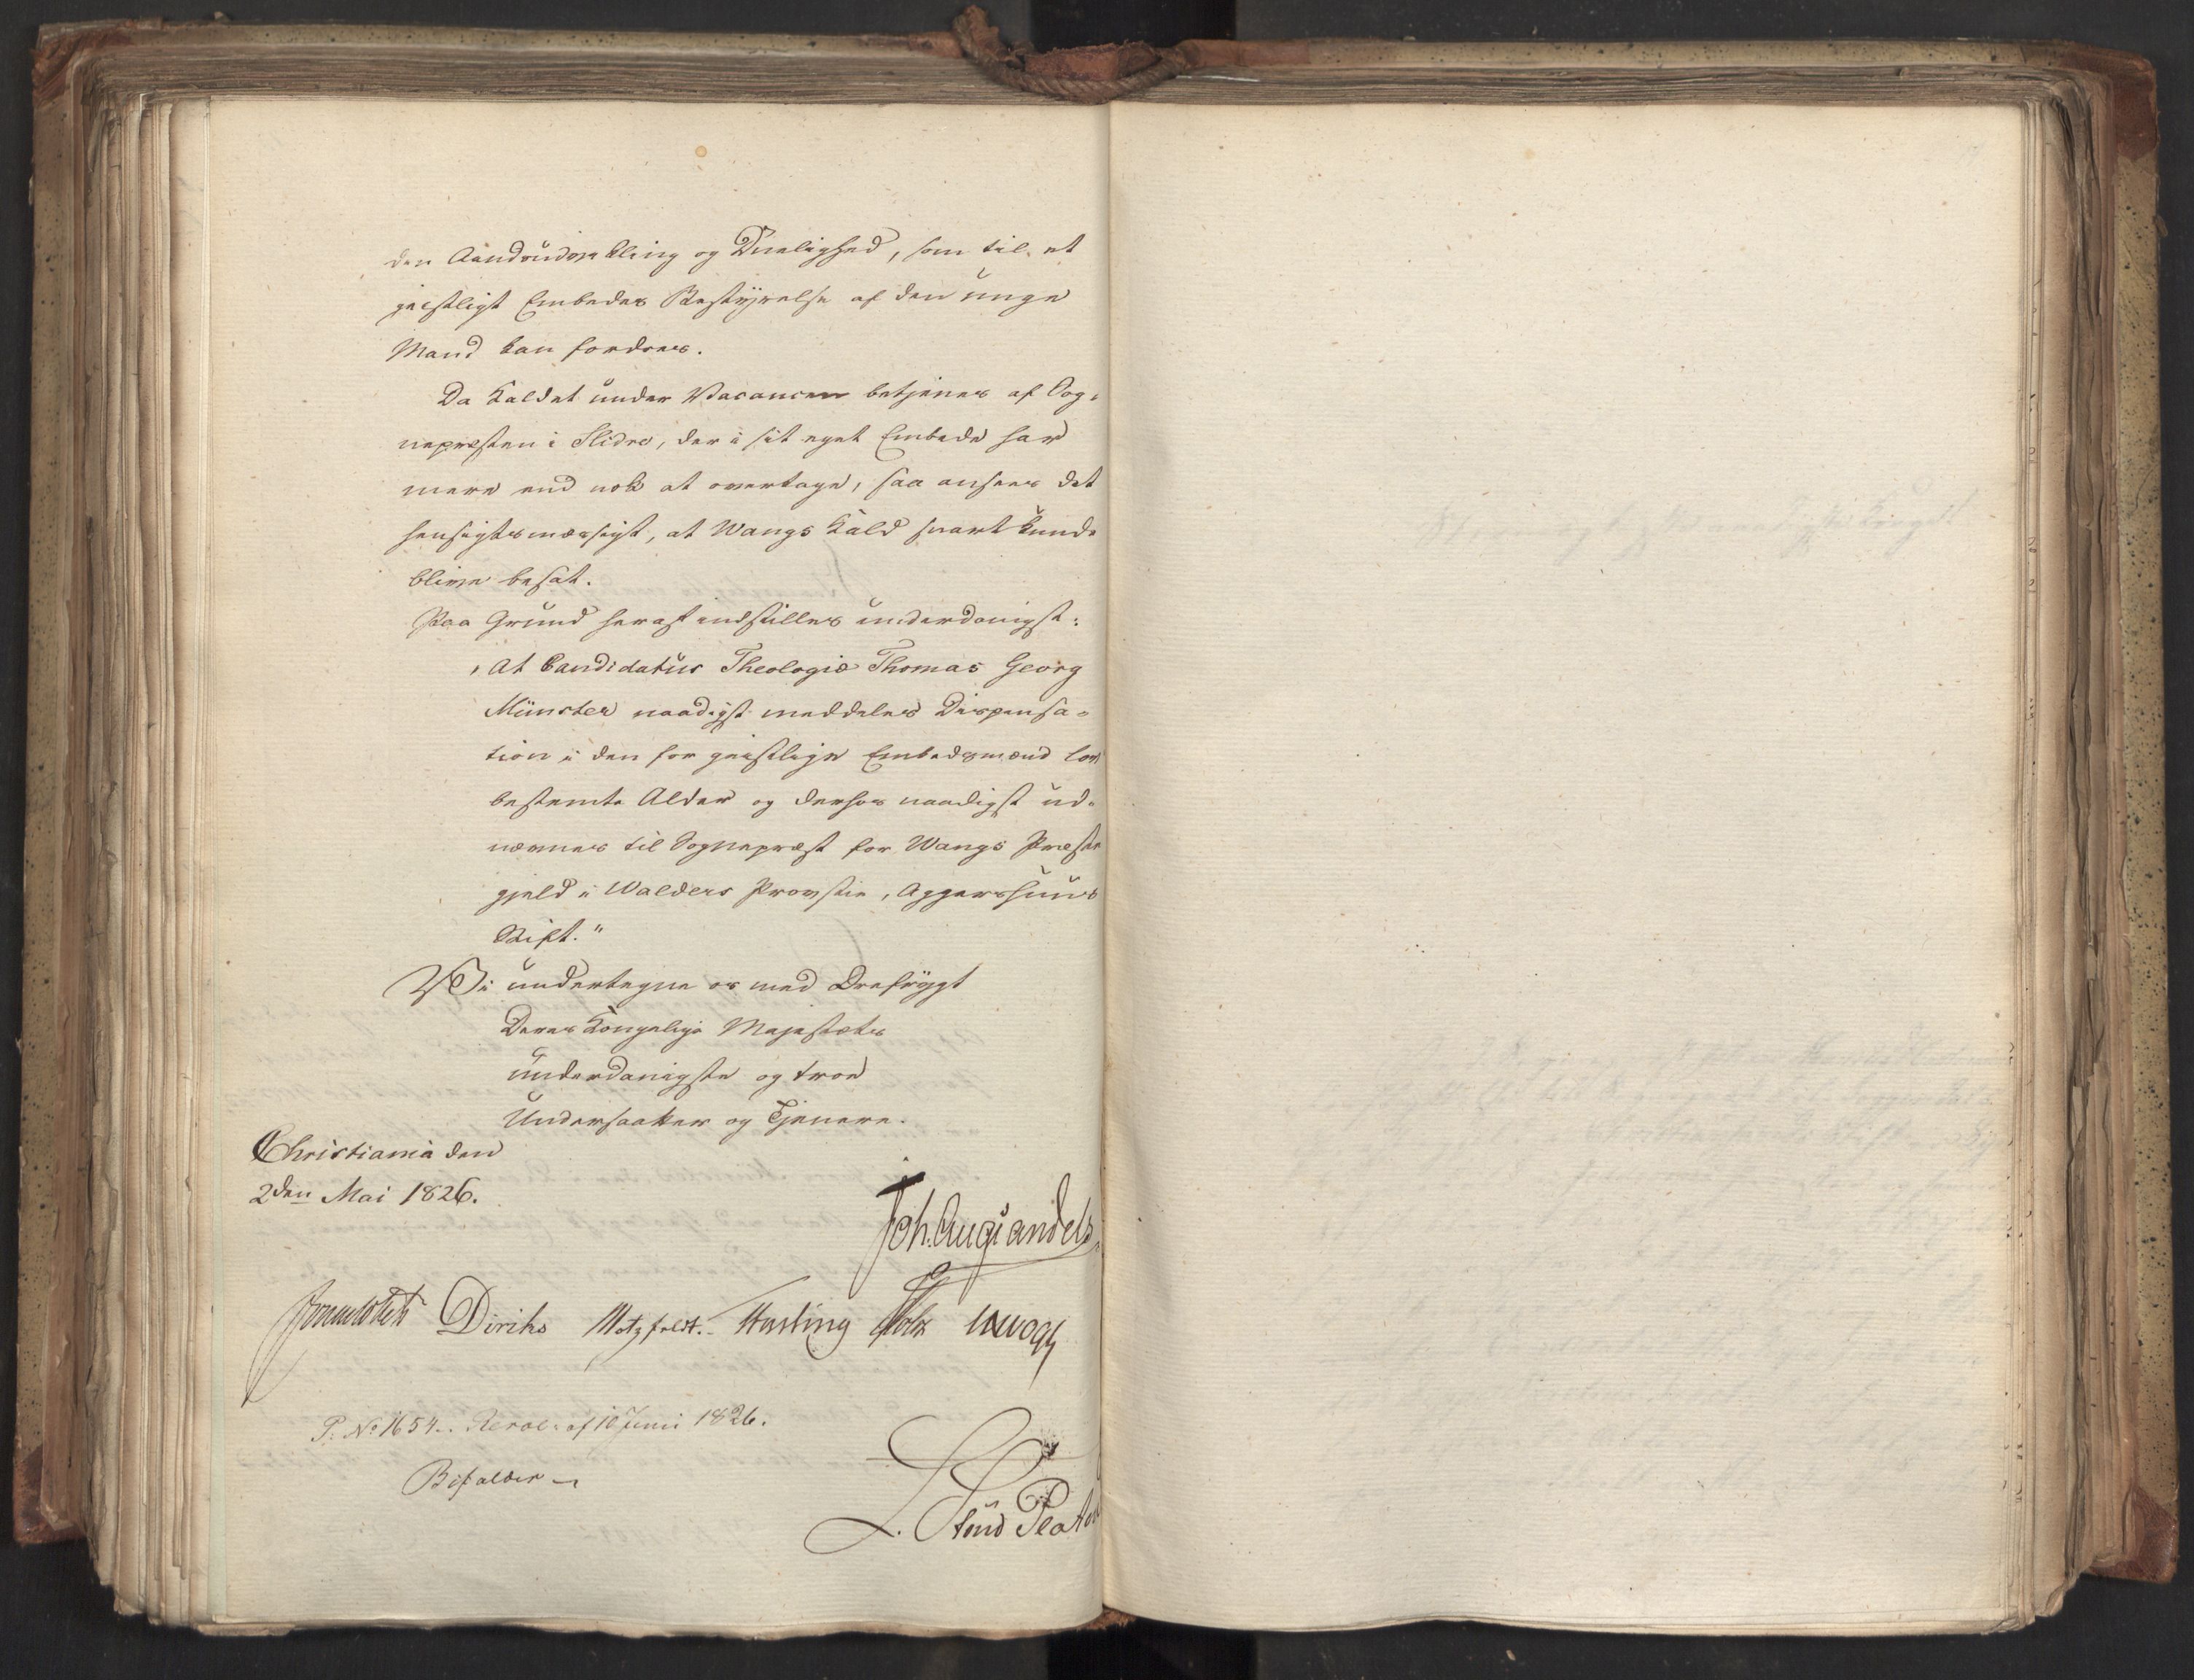 den Aandsudvikling og Duelighed, som til et
geistligt Embedes Bestyrelse af den unge
Mand kan fordres.
Da Kaldet under Vacancen betjenes af Sog-
nepresten i Slidre, der i sit eget Embede har
mere end nok at overtage, saa ansees det
hensigtsmæssigt, at Wangs Kald snart kunde
blive besat.
Paa Grund heraf indstilles underdanigst:
"At Candidatus Theologiæ Thomas Georg
Münster naadigst meddeles Dispensa-
tion i den for geistlige Embedsmænd lov
bestemte Alder og derhos naadigst ud-
nævnes til Sognepræst for Wangs Præste
gjeld i Walders Provstie, Aggershuus
Stift."
Vi undertegne os med Ærefrygt
Deres Kongelige Majestæts
underdanigste og troe
Undersaatter og Tjenere.
Christiania den
2den Mai 1826.
Joh. Aug. Sandels
Diriks Motzfeldt. Hasting Holst
P. No 1654. Resol. af 10 Juni 1826.
Bifaldes
L. Stud Platou